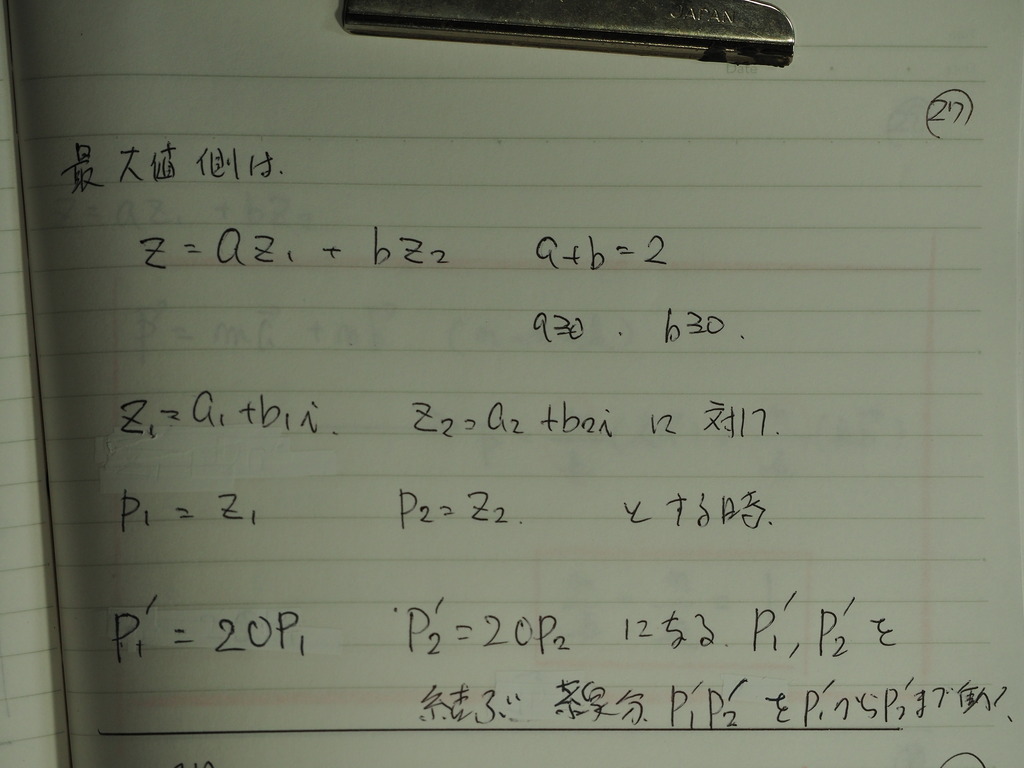 JAPAN
Date
27
最大値側は.
z = az₁ + bz₂ a+b=2
a≧0 . b≧0 .
z₁=a₁+b₁i. z₂=a₂+b₂i に対し.
P₁ = z₁ P₂=z₂. とする時.
P₁′ = 2OP₁ P₂′=2OP₂ になる P₁′, P₂′を
結ぶ 線分 P₁′P₂′ をP₁′からP₂′まで動く.